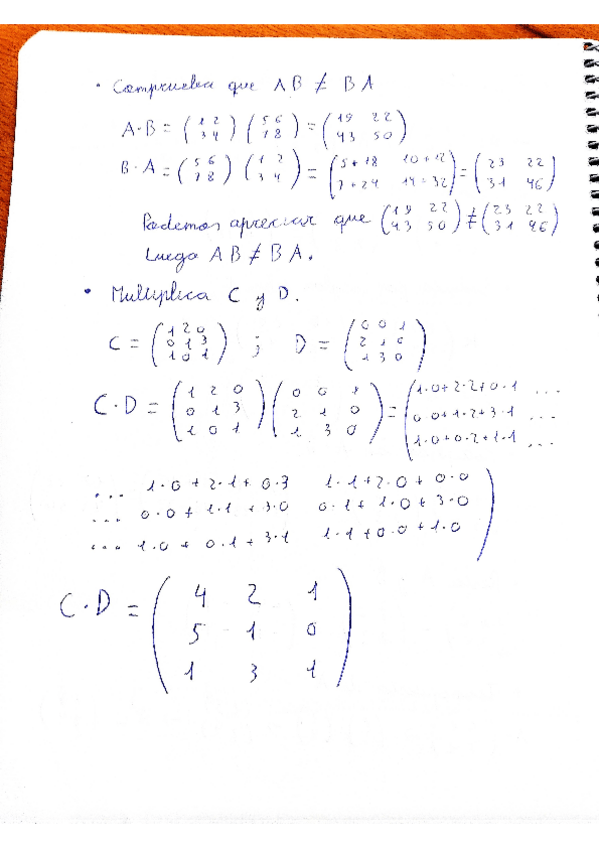 • Comprueba que AB ≠ BA
A·B = (1 2 / 3 4) (5 6 / 7 8) = (19 22 / 43 50)
B·A = (5 6 / 7 8) (1 2 / 3 4) = (5+18 10+12 / 7+24 14+32) = (23 22 / 31 46)
Podemos apreciar que (19 22 / 43 50) ≠ (23 22 / 31 46)
Luego AB ≠ BA.
• Multiplica C y D.
C = (1 2 0 / 0 1 3 / 1 0 1) ; D = (0 0 1 / 2 1 0 / 1 3 0)
C·D = (1 2 0 / 0 1 3 / 1 0 1) (0 0 1 / 2 1 0 / 1 3 0) = (1·0+2·2+0·1 ... / 0·0+1·2+3·1 ... / 1·0+0·2+1·1 ...
... 1·0+2·1+0·3 1·1+2·0+0·0
... 0·0+1·1+3·0 0·1+1·0+3·0
... 1·0+0·1+3·1 1·1+0·0+1·0 )
C·D = (4 2 1 / 5 1 0 / 1 3 1)